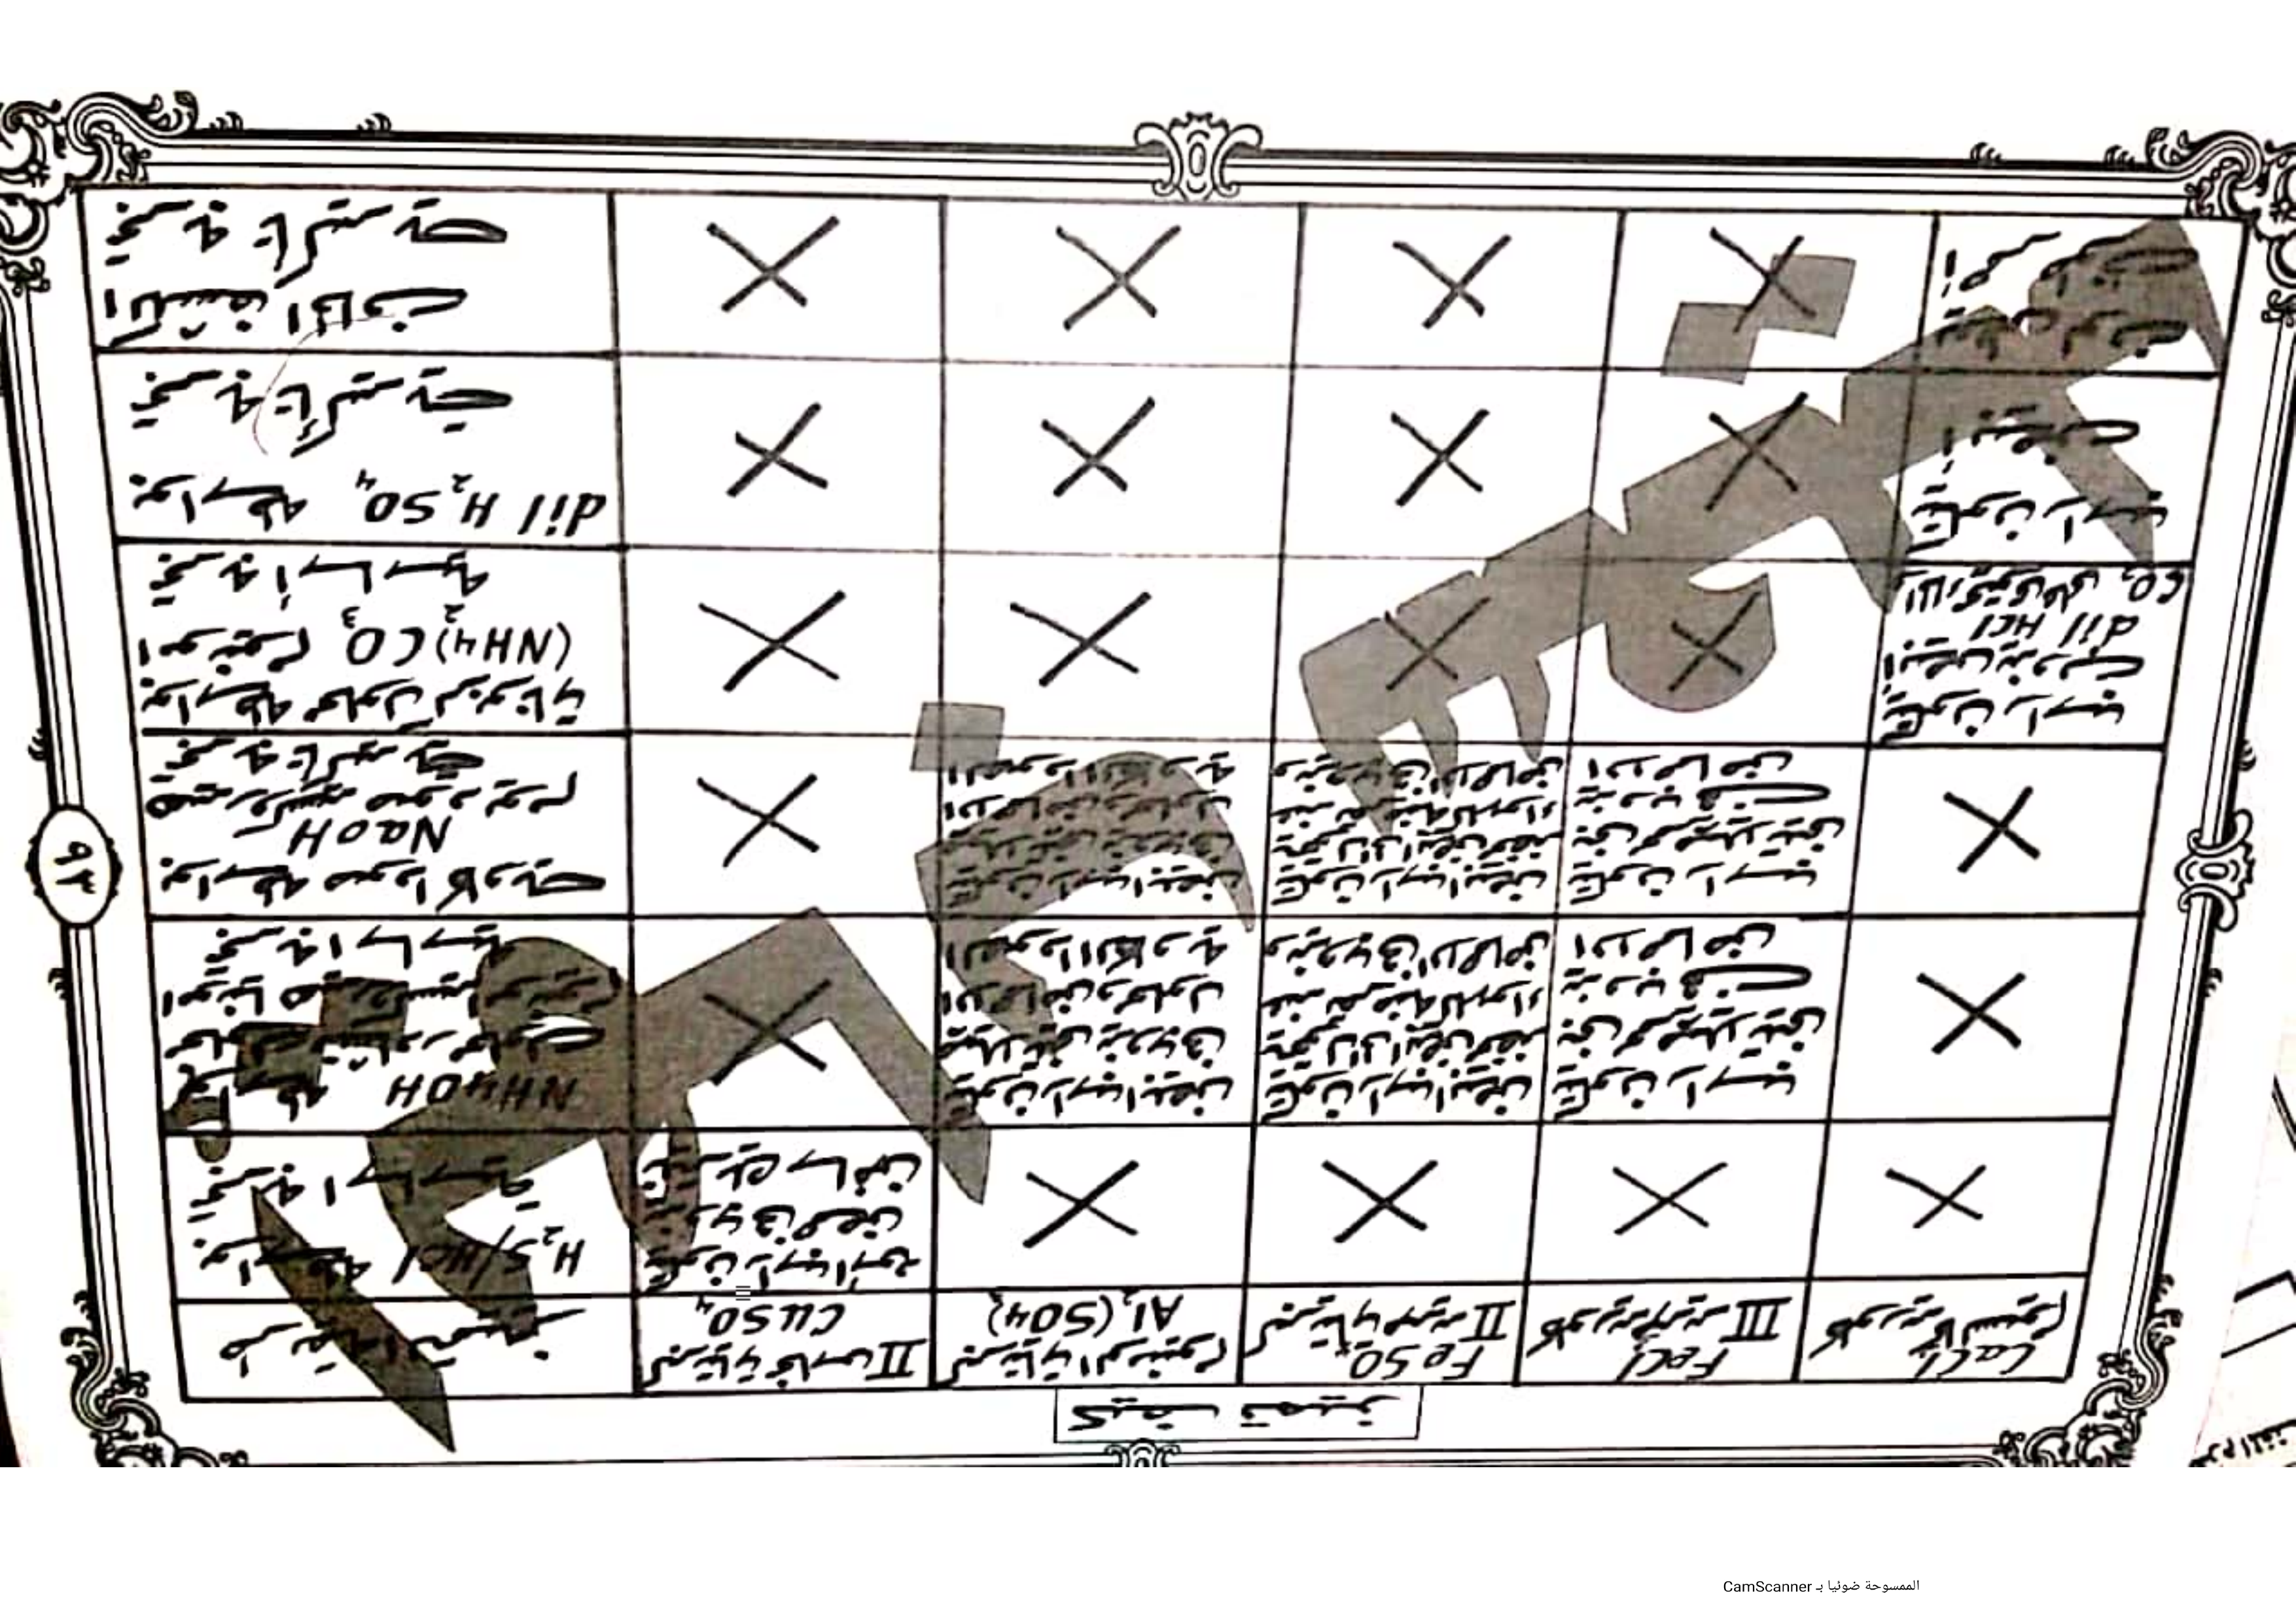 كيف تميز
كبريتات نحاس II
CuSO4
كبريتات الومنيوم
Al2(SO4)3
كبريتات حديد II
FeSO4
كلوريد حديد III
FeCl3
كلوريد كالسيوم
CaCl2
بواسطة H2S/HCl
تجربة اساسية
يتكون راسب أسود
يذوب في حمض
نيتريك ساخن
NH4OH
محلول النشادر
هيدروكسيد امونيوم
تجربة اساسية
يتكون راسب أبيض
جيلاتيني يذوب في
الاحماض ومحلول
الصودا الكاوية
يتكون راسب أبيض
يتحول الى أبيض مخضر
عند تعرضه للهواء
ويذوب في الاحماض
يتكون راسب
بني محمر جيلاتيني
يذوب في
الاحماض
بواسطة صودا كاوية
NaOH
هيدروكسيد صوديوم
تجربة تأكيدية
يتكون راسب أبيض
جيلاتيني يذوب في
الاحماض ومحلول
الصودا الكاوية
يتكون راسب أبيض
يتحول الى أبيض مخضر
عند تعرضه للهواء
ويذوب في الاحماض
يتكون راسب
بني محمر جيلاتيني
يذوب في
الاحماض
بواسطة محلول كربونات
امونيوم (NH4)2CO3
تجربة أساسية
يتكون راسب
أبيض يذوب في
dil HCl
CO2
بواسطة dil H2SO4
تجربة تأكيدية
يتكون راسب
أبيض
الكشف الجاف
تجربة تأكيدية
٩٣
الممسوحة ضوئيا بـ CamScanner